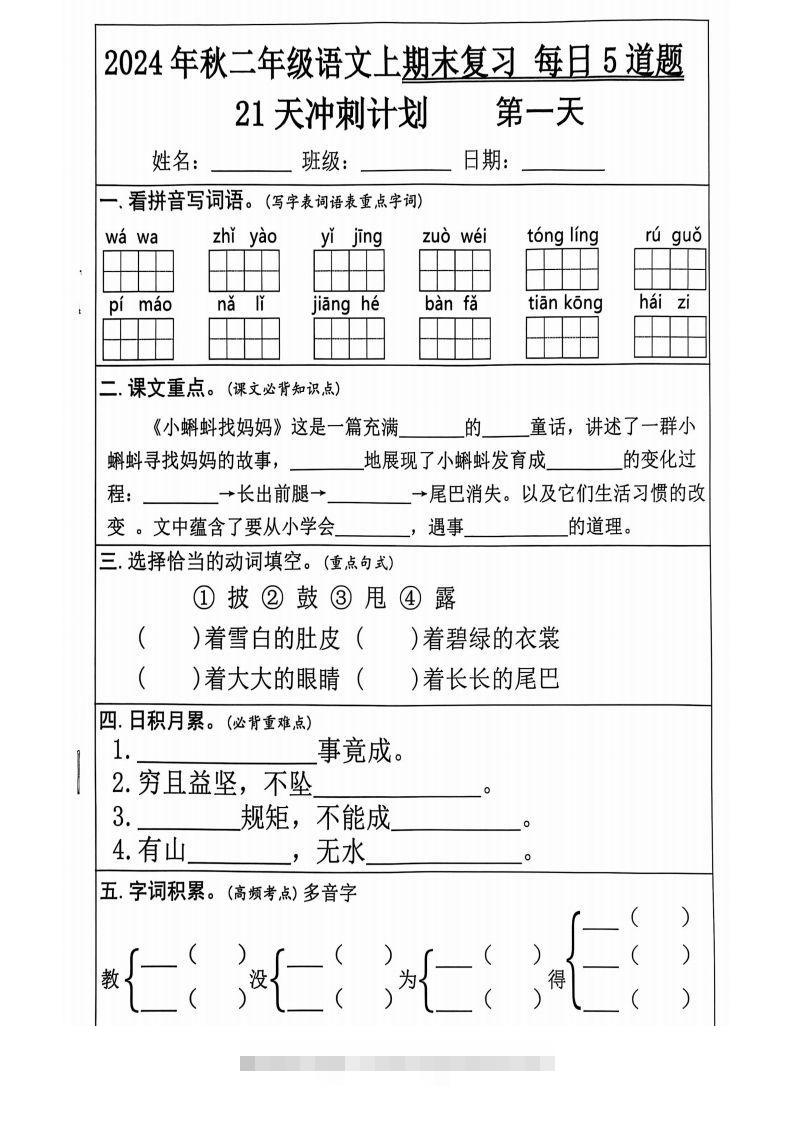 2024年秋二年级语文上期末复习 每日5道题
21天冲刺计划 第一天
姓名：________ 班级：________ 日期：________
一.看拼音写词语。(写字表词语表重点字词)
wá wa zhǐ yào yǐ jīng zuò wéi tóng líng rú guǒ
pí máo nǎ lǐ jiāng hé bàn fǎ tiān kōng hái zi
二.课文重点。(课文必背知识点)
《小蝌蚪找妈妈》这是一篇充满______的_____童话，讲述了一群小
蝌蚪寻找妈妈的故事，_______地展现了小蝌蚪发育成_______的变化过
程：_______→长出前腿→________→尾巴消失。以及它们生活习惯的改
变 。文中蕴含了要从小学会_______，遇事__________的道理。
三.选择恰当的动词填空。(重点句式)
① 披 ② 鼓 ③ 甩 ④ 露
( )着雪白的肚皮 ( )着碧绿的衣裳
( )着大大的眼睛 ( )着长长的尾巴
四.日积月累。(必背重难点)
1.______________事竟成。
2.穷且益坚，不坠_____________。
3.________规矩，不能成__________。
4.有山________，无水____________。
五.字词积累。(高频考点)多音字
教 ___( ) ___( ) 没 ___( ) ___( ) 为 ___( ) ___( ) 得 ___( ) ___( ) ___( )